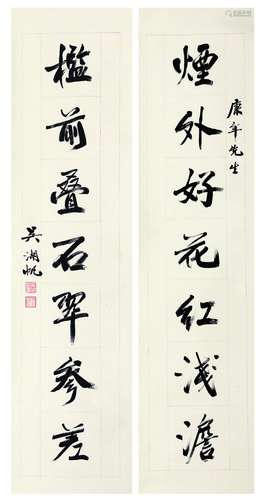 煙外好花紅淺澹
康年先生
檻前叠石翠參差
吳湖帆